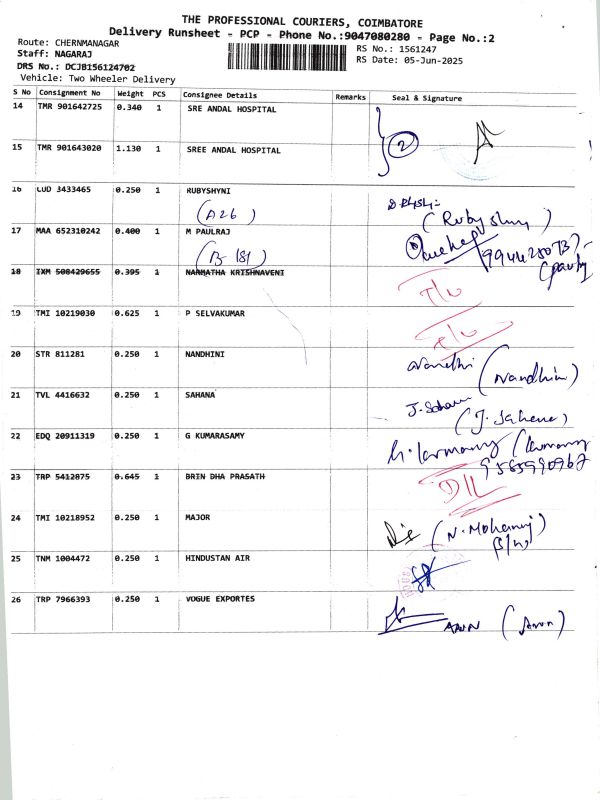 THE PROFESSIONAL COURIERS, COIMBATORE
Delivery Runsheet - PCP - Phone No.:9047080280 - Page No.:2
Route: CHERNMANAGAR
Staff: NAGARAJ
DRS No.: DCJB156124702
Vehicle: Two Wheeler Delivery
RS No.: 1561247
RS Date: 05-Jun-2025
S No Consignment No Weight PCS Consignee Details Remarks Seal & Signature
14 TMR 901642725 0.340 1 SRE ANDAL HOSPITAL
2
15 TMR 901643020 1.130 1 SREE ANDAL HOSPITAL
16 CUD 3433465 0.250 1 RUBYSHYNI
(A26) (Rubyshyni)
17 MAA 652310242 0.400 1 M PAULRAJ
(B-181)
18 IXM 500429655 0.395 1 NARMATHA KRISHNAVENI
19 TMI 10219030 0.625 1 P SELVAKUMAR
20 STR 811281 0.250 1 NANDHINI
(Nandhini)
21 TVL 4416632 0.250 1 SAHANA J. Sahana
(J. Sahana)
22 EDQ 20911319 0.250 1 G KUMARASAMY
9585990967
23 TRP 5412875 0.645 1 BRIN DHA PRASATH
D/L
24 TMI 10218952 0.250 1 MAJOR
25 TNM 1004472 0.250 1 HINDUSTAN AIR
26 TRP 7966393 0.250 1 VOGUE EXPORTES
ARUN (Arun)